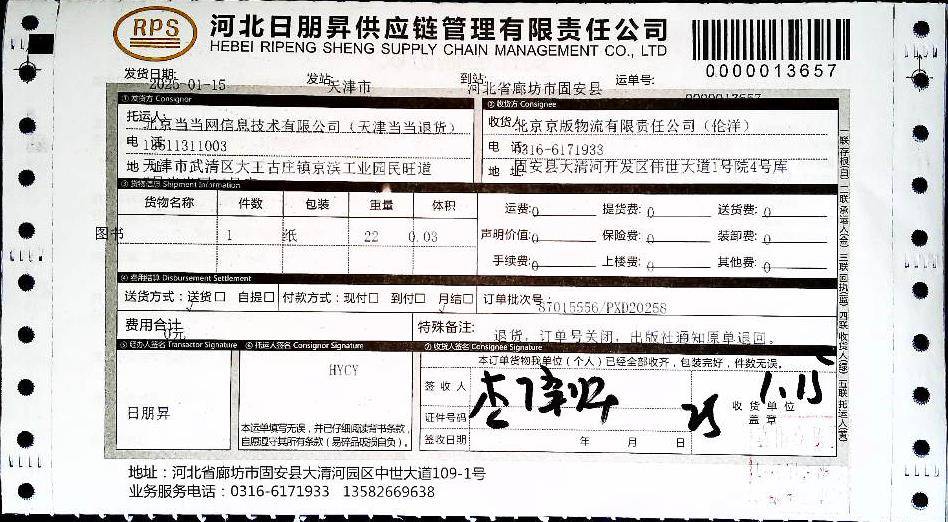 RPS
河北日朋昇供应链管理有限责任公司
HEBEI RIPENG SHENG SUPPLY CHAIN MANAGEMENT CO., LTD
0000013657
发货日期: 2025-01-15 发站: 天津市 到站: 河北省廊坊市固安县 运单号: 0000013657
① 发货方 Consignor ② 收货方 Consignee
托运人: 北京当当网信息技术有限公司（天津当当退货） 收货人: 北京京版物流有限责任公司（伦洋）
电 话 18611311003 电 话 0316-6171933
地 址 天津市武清区大王古庄镇京滨工业园民旺道 地 址 固安县大清河开发区伟世大道1号院4号库
③ 货物信息 Shipment Information
货物名称 件数 包装 重量 体积 运费: 0 提货费: 0 送货费: 0
图书 1 纸 22 0.03 声明价值: 0 保险费: 0 装卸费: 0
手续费: 0 上楼费: 0 其他费: 0
④ 费用结算 Disbursement Settlement
送货方式：送货☐ 自提☐ 付款方式：现付☐ 到付☐ 月结☐ 订单批次号: 87015556/PXD20258
费用合计 0元 特殊备注: 退货, 订单号关闭, 出版社通知原单退回。
⑤ 经办人签名 Transactor Signature ⑥ 托运人签名 Consignor Signature ⑦ 收货人签名 Consignee Signature
本订单货物我单位（个人）已经全部收齐，包装完好，件数无误。
HYCY
签收人
日朋昇
证件号码
收货单位
盖章
25
1.15
本运单填写无误，并已仔细阅读背书条款，
自愿遵守其所有条款（易碎品破损自负）。
签收日期 年 月 日
一联存根(白) 二联承运人(金) 三联回执(蓝) 四联收货人(绿) 五联托运人(黄)
地址：河北省廊坊市固安县大清河园区中世大道109-1号
业务服务电话：0316-6171933 13582669638